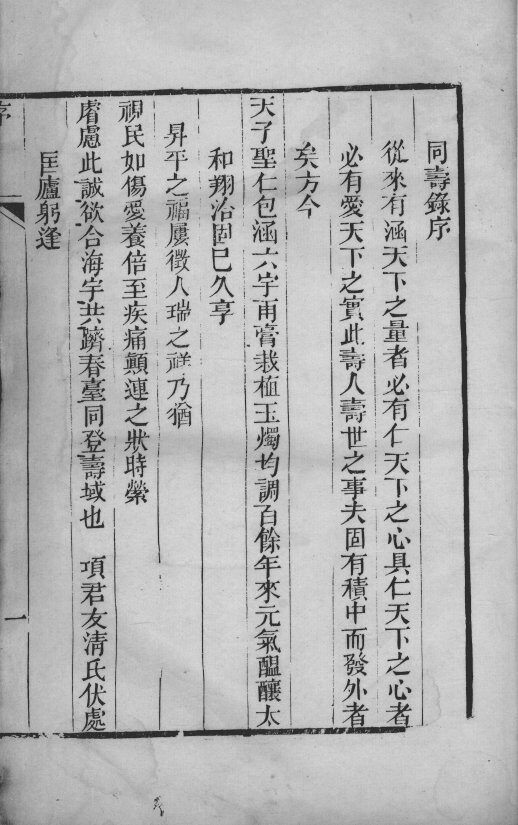 同壽錄序
從來有涵天下之量者必有仁天下之心具仁天下之心者
必有愛天下之實此壽人壽世之事夫固有積中而發外者
矣方今
天子聖仁包涵六宇雨膏栽植玉燭均調百餘年來元氣醞釀太
和翔洽固已久享
昇平之福屢徵人瑞之祥乃猶
視民如傷愛養倍至疾痛顛連之狀時縈
睿慮此誠欲合海宇共躋春臺同登壽域也 項君友淸氏伏處
匡廬躬逢
序
一